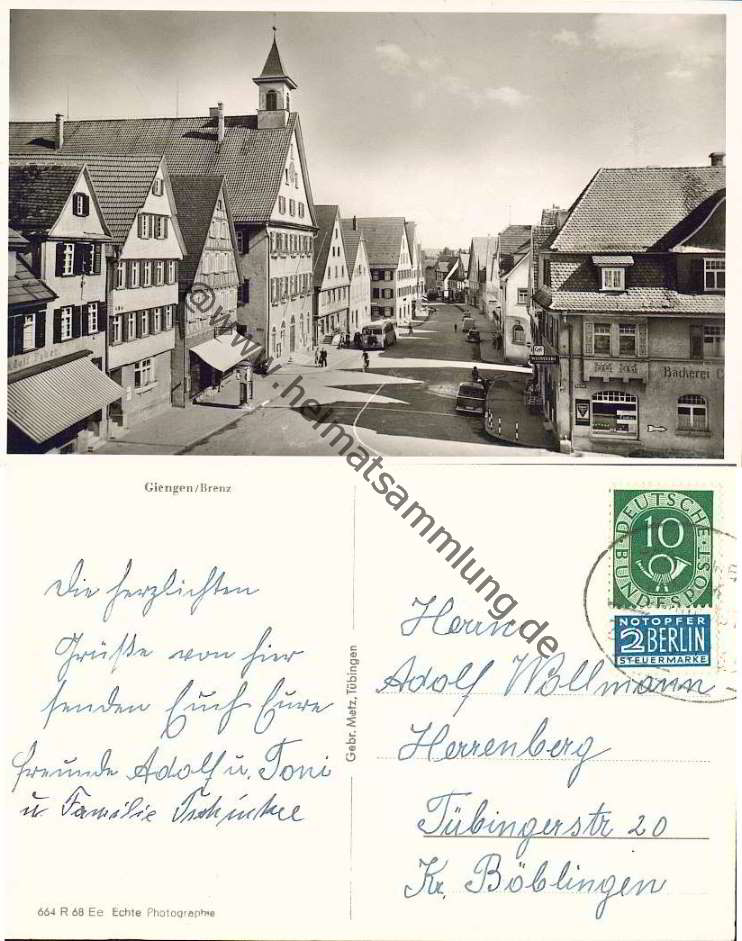 Bäckerei C
@www.heimatsammlung.de
Giengen/Brenz
Die herzlichsten
Grüße von hier
senden Euch Eure
Freunde Adolf u. Toni
u Familie
664 R 68 Ee Echte Photographie
Gebr. Metz, Tübingen
DEUTSCHE
BUNDESPOST
10
NOTOPFER
2 BERLIN
STEUERMARKE
Herrn
Adolf Wollmann
Herrenberg
Tübingerstr 20
Kr. Böblingen